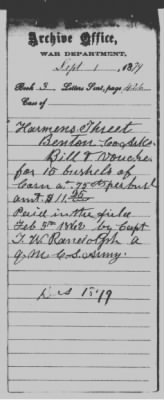 Archive Office,
WAR DEPARTMENT,
Sept 1, 1879
Book 3, Letters Sent, page 426
Case of
Harmens Threet
Benton Co, Arks
Bill & Voucher
for 15 bushels of
Corn at 75 cts per bush
amt. $11.25
Paid in the field
Feb 5th 1862 by Capt
T. W. Randolph a
q M C. S. Army.
Dis 1579